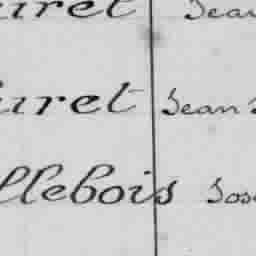 uret Jean
uret Jean
llebois Jos